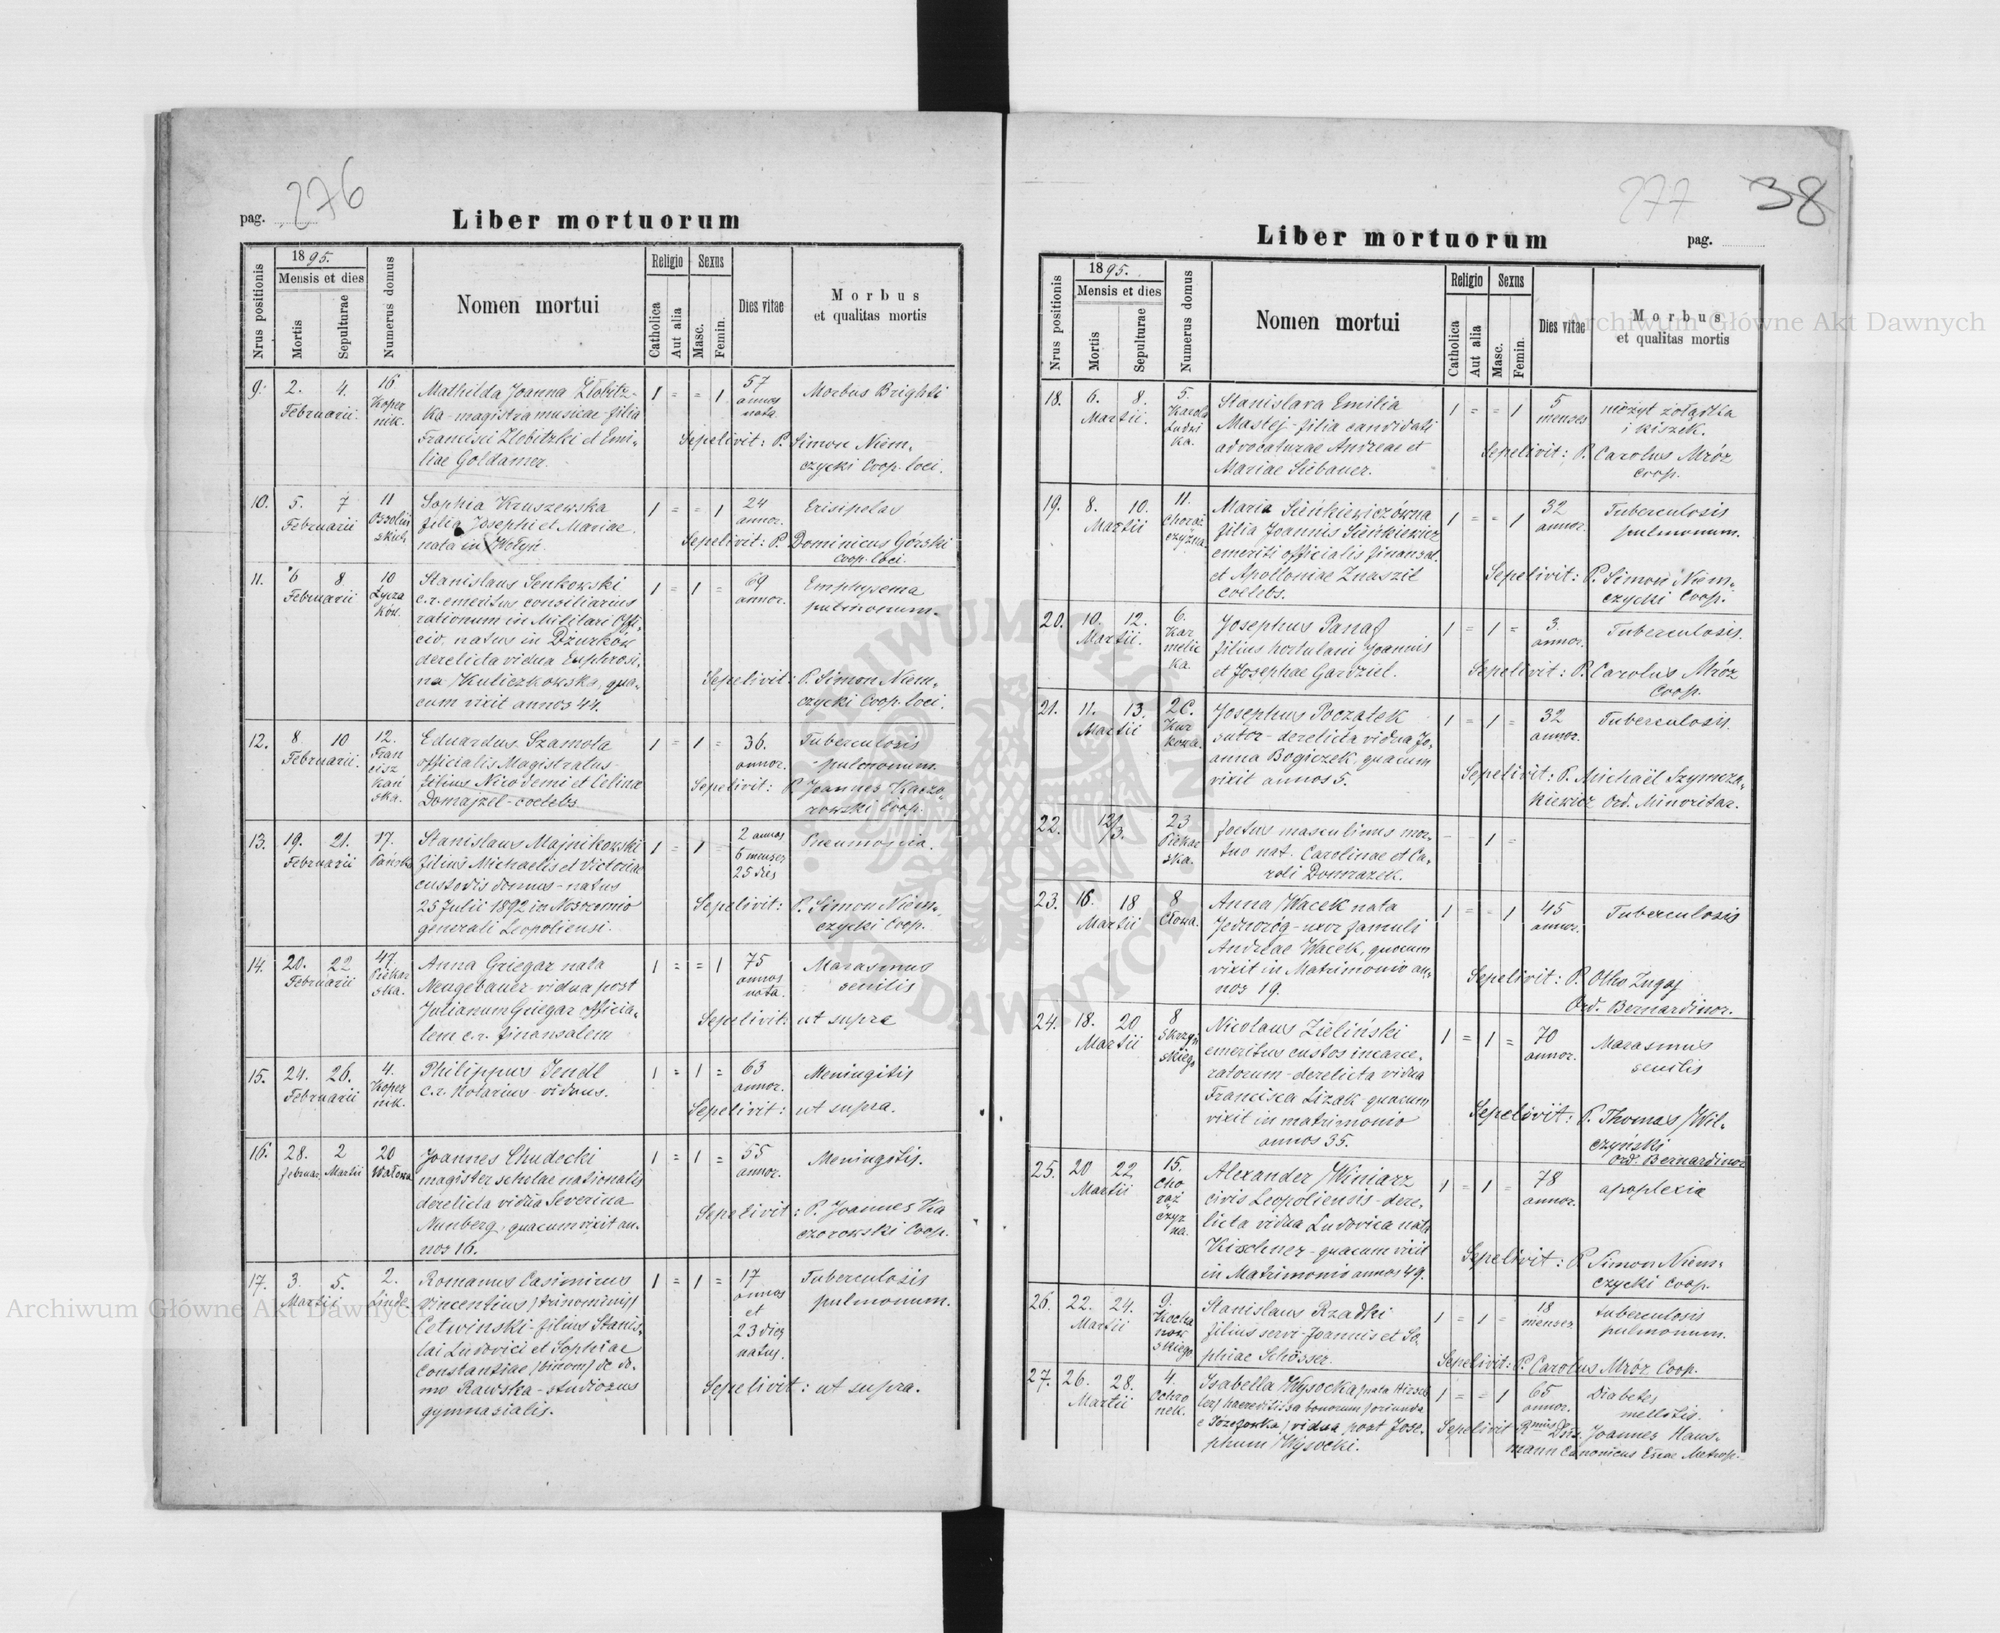 276
pag.
Liber mortuorum
Nrus positionis
1895.
Mensis et dies
Mortis
Sepulturae
Numerus domus
Nomen mortui
Religio
Catholica
Aut alia
Sexus
Masc.
Femin.
Dies vitae
Morbus
et qualitas mortis
9. 2. 4. Februarii. 16 Kopernik.
Mathilda Joanna Złobitz-
ka - magistra musicae - filia
Francisci Zlobitzki et Emi-
liae Goldamer.
1 = = 1 57 annos nata
Morbus Brighti
Sepelivit: P. Simon Niem-
czycki Coop. loci.
10. 5. 7 Februarii 11 Ossolińskich
Sophia Kruszewska
filia Josephi et Mariae
nata in Wołyń
1 = = 1 24 annor.
Erisipelas
Sepelivit: P. Dominicus Górski
coop. loci.
11. 6 8. Februarii 10 Łyczaków.
Stanislaus Senkowski
c.r. emeritus consiliarius
rationum in Militari Offi-
cio, natus in Dżurków
derelicta vidua Euphrosi-
na Kuliczkowska, qua-
cum vixit annos 44.
1 = 1 = 69 annor.
Emphysema
pulmonum.
Sepelivit: P. Simon Niem-
czycki Coop. loci.
12. 8 10 Februarii. 12. Franciszkańska.
Eduardus Szamota
officialis Magistratus
filius Nicodemi et Celinae
Domajzel - coelebs.
1 = 1 = 36. annor.
Tuberculosis
pulmonum.
Sepelivit: P. Joannes Kaczo-
rowski Coop.
13. 19. 21. Februarii 17. Pańska
Stanislaus Majnikowski
filius Michaelis et Victoriae
custodis domus - natus
25 Julii 1892 in Nosocomio
generali Leopoliensi.
1 = 1 = 2 annos 6 menses 25 dies
Pneumonia.
Sepelivit: P. Simon Niem-
czycki Coop.
14. 20. 22 Februarii 47. Piekarska.
Anna Griegar nata
Neugebauer - vidua post
Julianum Griegar officia-
lem c.r. finansalem
1 = = 1 75 annos nata.
Marasmus
senilis
Sepelivit: ut supra
15. 24. 26. Februarii 4. Kopernik.
Philippus Jendl
c.r. Notarius - viduus.
1 = 1 = 63 annor.
Meningitis
Sepelivit: ut supra.
16. 28. Februar. 2 Martii 20 Wałowa
Joannes Chudecki
magister scholae nationalis
derelicta vidua Severina
Nunberg, quacum vixit an-
nos 16.
1 = 1 = 55 annor.
Meningitis.
Sepelivit: P. Joannes Ka
czorowski Coop.
17. 3. 5. Martii 2. Linde.
Romanus Casimirus
Vincentius (trinominis)
Cetwinski - filius Stanis-
lai Ludovici et Sophiae
Constantiae (binom) de do-
mo Rawska - studiosus
gymnasialis.
1 = 1 = 17 annos et 23 dies natus.
Tuberculosis
pulmonum.
Sepelivit: ut supra.
277
38
Liber mortuorum
pag.
Nrus positionis
1895.
Mensis et dies
Mortis
Sepulturae
Numerus domus
Nomen mortui
Religio
Catholica
Aut alia
Sexus
Masc.
Femin.
Dies vitae
Morbus
et qualitas mortis
18. 6. 8. Martii. 5. Karola Ludwika.
Stanislava Emilia
Mastej - filia candidati
advocaturae Andreae et
Mariae Siebauer.
1 = = 1 5 menses
nieżyt żołądka
i kiszek.
Sepelivit: P. Carolus Mróz
coop.
19. 8. 10. Martii 11. Chorążczyzna.
Maria Sieńkiewiczówna
filia Joannis Sieńkiewicz
emeriti officialis finansal.
et Apolloniae Znaszil
coelebs.
1 = = 1 32 annor.
Tuberculosis
pulmonum.
Sepelivit: P. Simon Niem-
czycki Coop.
20. 10. 12. Martii. 6. Karmelicka.
Josephus Panaś
filius hortulani Joannis
et Josephae Gardziel.
1 = 1 = 3. annor.
Tuberculosis.
Sepelivit: P. Carolus Mróz
Coop.
21. 11. 13. Martii 2C. Kurkowa.
Josephus Początek
sutor - derelicta vidua Jo-
anna Bogiczek, quacum
vixit annos 5.
1 = 1 = 32 annor.
Tuberculosis.
Sepelivit: P. Michaël Szymcza-
kiewicz Ord. Minoritar.
22. 12/3. 23 Piekarska.
foetus masculinus mor-
tuo nat. Carolinae et Ca-
roli Domrazek.
1 =
23. 16. 18 Martii 8 Cłowa.
Anna Wacek nata
Jednoróg - uxor famuli
Andreae Wacek, quocum
vixit in Matrimonio an-
nos 19.
1 = = 1 45 annos.
Tuberculosis
Sepelivit: P. Otho Zugaj
Ord. Bernardinor.
24. 18. 20 Martii 8 Skrzyńskiego
Nicolaus Zieliński
emeritus custos incarce-
ratorum - derelicta vidua
Francisca Lizak - quacum
vixit in matrimonio
annos 35.
1 = 1 = 70 annor.
Marasmus
senilis
Sepelivit: P. Thomas Wil-
czyński
Ord. Bernardinor
25. 20 22 Martii 15. Chorążczyzna.
Alexander Winiarz
civis Leopoliensis - dere-
licta vidua Ludovica nata
Kirschner - quacum vixit
in Matrimonio annos 49.
1 = 1 = 78 annor.
apoplexia
Sepelivit: P. Simon Niem-
czycki Coop.
26. 22. 24. Martii 9. Kochanowskiego
Stanislaus Rzadki
filius servi Joannis et So-
phiae Schösser.
1 = 1 = 18 menses
tuberculosis
pulmonum.
Sepelivit: P. Carolus Mróz Coop.
27. 26. 28. Martii 4. Ochronek.
Isabella Wysocka (nata Hirsch
ler) haereditissa bonorum (oriunda
e Józefówka) vidua post Jose-
phum Wysocki.
1 = = 1 65 annor.
Diabetes
mellitis.
Sepelivit Rmus Dns. Joannes Haus-
mann Canonicus Eccae Metrop.
Archiwum Główne Akt Dawnych
Archiwum Główne Akt Dawnych
ARCHIWUM GŁÓWNE AKT DAWNYCH